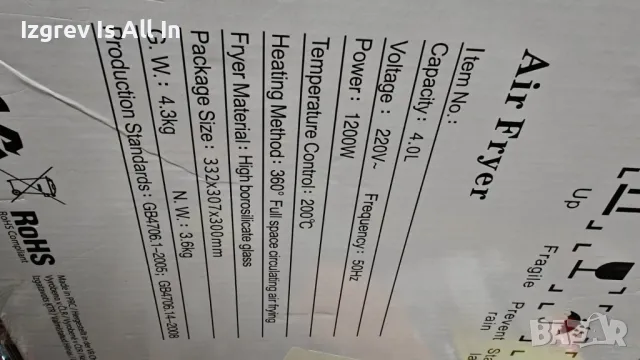 Izgrev Is All In
Air Fryer
Item No.:
Capacity: 4.0L
Voltage: 220V~ Frequency: 50Hz
Power: 1200W
Temperature Control: 200℃
Heating Method: 360° Full space circulating air frying
Fryer Material: High borosilicate glass
Package Size: 332x307x300mm
G. W.: 4.3kg N. W.: 3.6kg
Production Standards: GB4706.1-2005; GB4706.14-2008
Up
Fragile
Prevent
rain
RoHS
RoHS Compliant
Made in PRC /
bazar